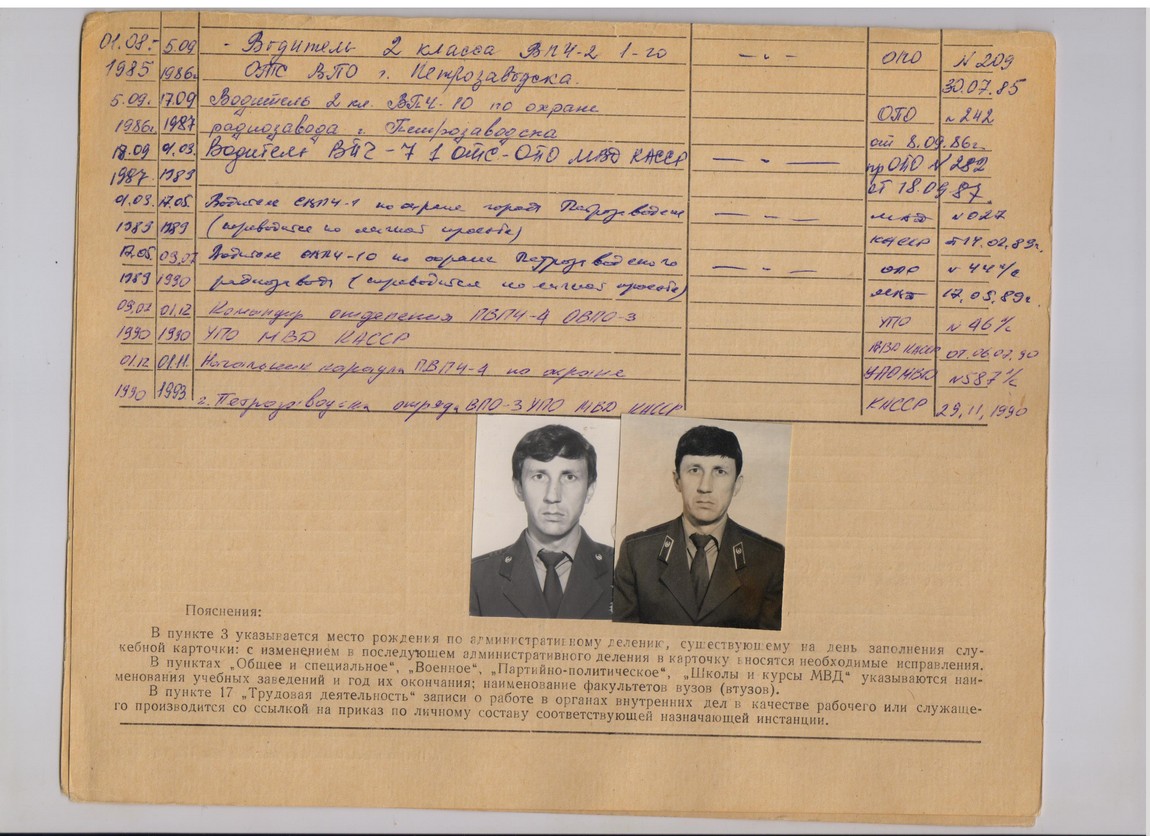 01.08.- 5.09 - Водитель 2 класса ВПЧ-2 1-го — " — ОПО N 209
1985 1986г. ОТС ВПО г. Петрозаводска. 30.07.85
5.09. 17.09 Водитель 2 кл. ВПЧ-10 по охране ОПО N 242
1986г. 1987 радиозавода г. Петрозаводска от 8.09.86г.
18.09 01.03. Водитель ВПЧ-7 1 ОТС-ОПО МВД КАССР — " — прОПО N 282
1987. 1989 от 18.09.87.
01.03. 17.05. Водитель СВПЧ-1 по охране города Петрозаводска — " — N 027
1989 1989 (переводится по личной просьбе) КАССР от 14.02.89г.
17.05. 09.07 Водитель ОВПЧ-10 по охране Петрозаводского — " — ОПО N 44 л/с
1989 1990 радиозавода (переводится по личной просьбе) 17.05.89г.
09.07 01.12 Командир отделения ПВПЧ-4 ОВПО-3 УПО N 46 л/с
1990 1990 УПО МВД КАССР МВД КАССР от 06.07.90
01.12 01.11. Начальник караула ПВПЧ-4 по охране УПО МВД N 587 л/с
1990 1993 г. Петрозаводска отряда ВПО-3 УПО МВД КАССР КАССР 29.11.1990
Пояснения:
В пункте 3 указывается место рождения по административному делению, существующему на день заполнения слу-
жебной карточки: с изменением в последующем административного деления в карточку вносятся необходимые исправления.
В пунктах „Общее и специальное“, „Военное“, „Партийно-политическое“, „Школы и курсы МВД“ указываются наи-
менования учебных заведений и год их окончания; наименование факультетов вузов (втузов).
В пункте 17 „Трудовая деятельность“ записи о работе в органах внутренних дел в качестве рабочего или служаще-
го производится со ссылкой на приказ по личному составу соответствующей назначающей инстанции.